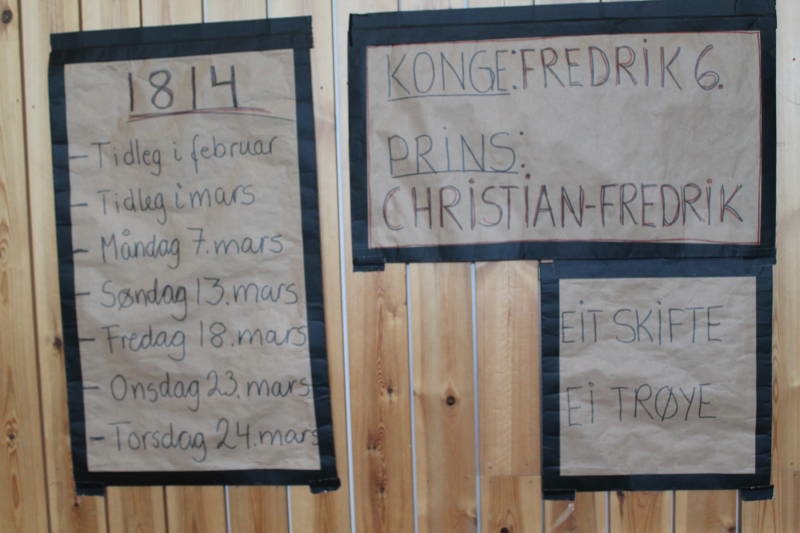 1814
- Tidleg i februar
- Tidleg i mars
- Måndag 7. mars
- Søndag 13. mars
- Fredag 18. mars
- Onsdag 23. mars
- Torsdag 24. mars
KONGE: FREDRIK 6.
PRINS:
CHRISTIAN-FREDRIK
EIT SKIFTE
EI TRØYE